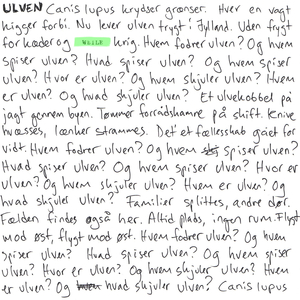 ULVEN Canis lupus krydser grænser. Hver en vagt
kigger forbi. Nu lever ulven trygt i Jylland. Uden frygt
for kæder og krig. Hvem fodrer ulven? Og hvem
spiser ulven? Hvad spiser ulven? Og hvem spiser
ulven? Hvor er ulven? Og hvem skjuler ulven? Hvem
er ulven? Og hvad skjuler ulven? Et ulvekobbel på
jagt gennem byen. Tømmer forrådskamre på skift. Knive
hvæsses, lænker strammes. Det er et fællesskab gået for
vidt. Hvem fodrer ulven? Og hvem spiser ulven?
Hvad spiser ulven? Og hvem spiser ulven? Hvor er
ulven? Og hvem skjuler ulven? Hvem er ulven? Og
hvad skjuler ulven? Familier splittes, andre dør.
Fælden findes også her. Altid plads, ingen rum. Flygt
mod øst, flygt mod øst. Hvem fodrer ulven? Og hvem
spiser ulven? Hvad spiser ulven? Og hvem spiser
ulven? Hvor er ulven? Og hvem skjuler ulven? Hvem
er ulven? Og hvad skjuler ulven? Canis lupus